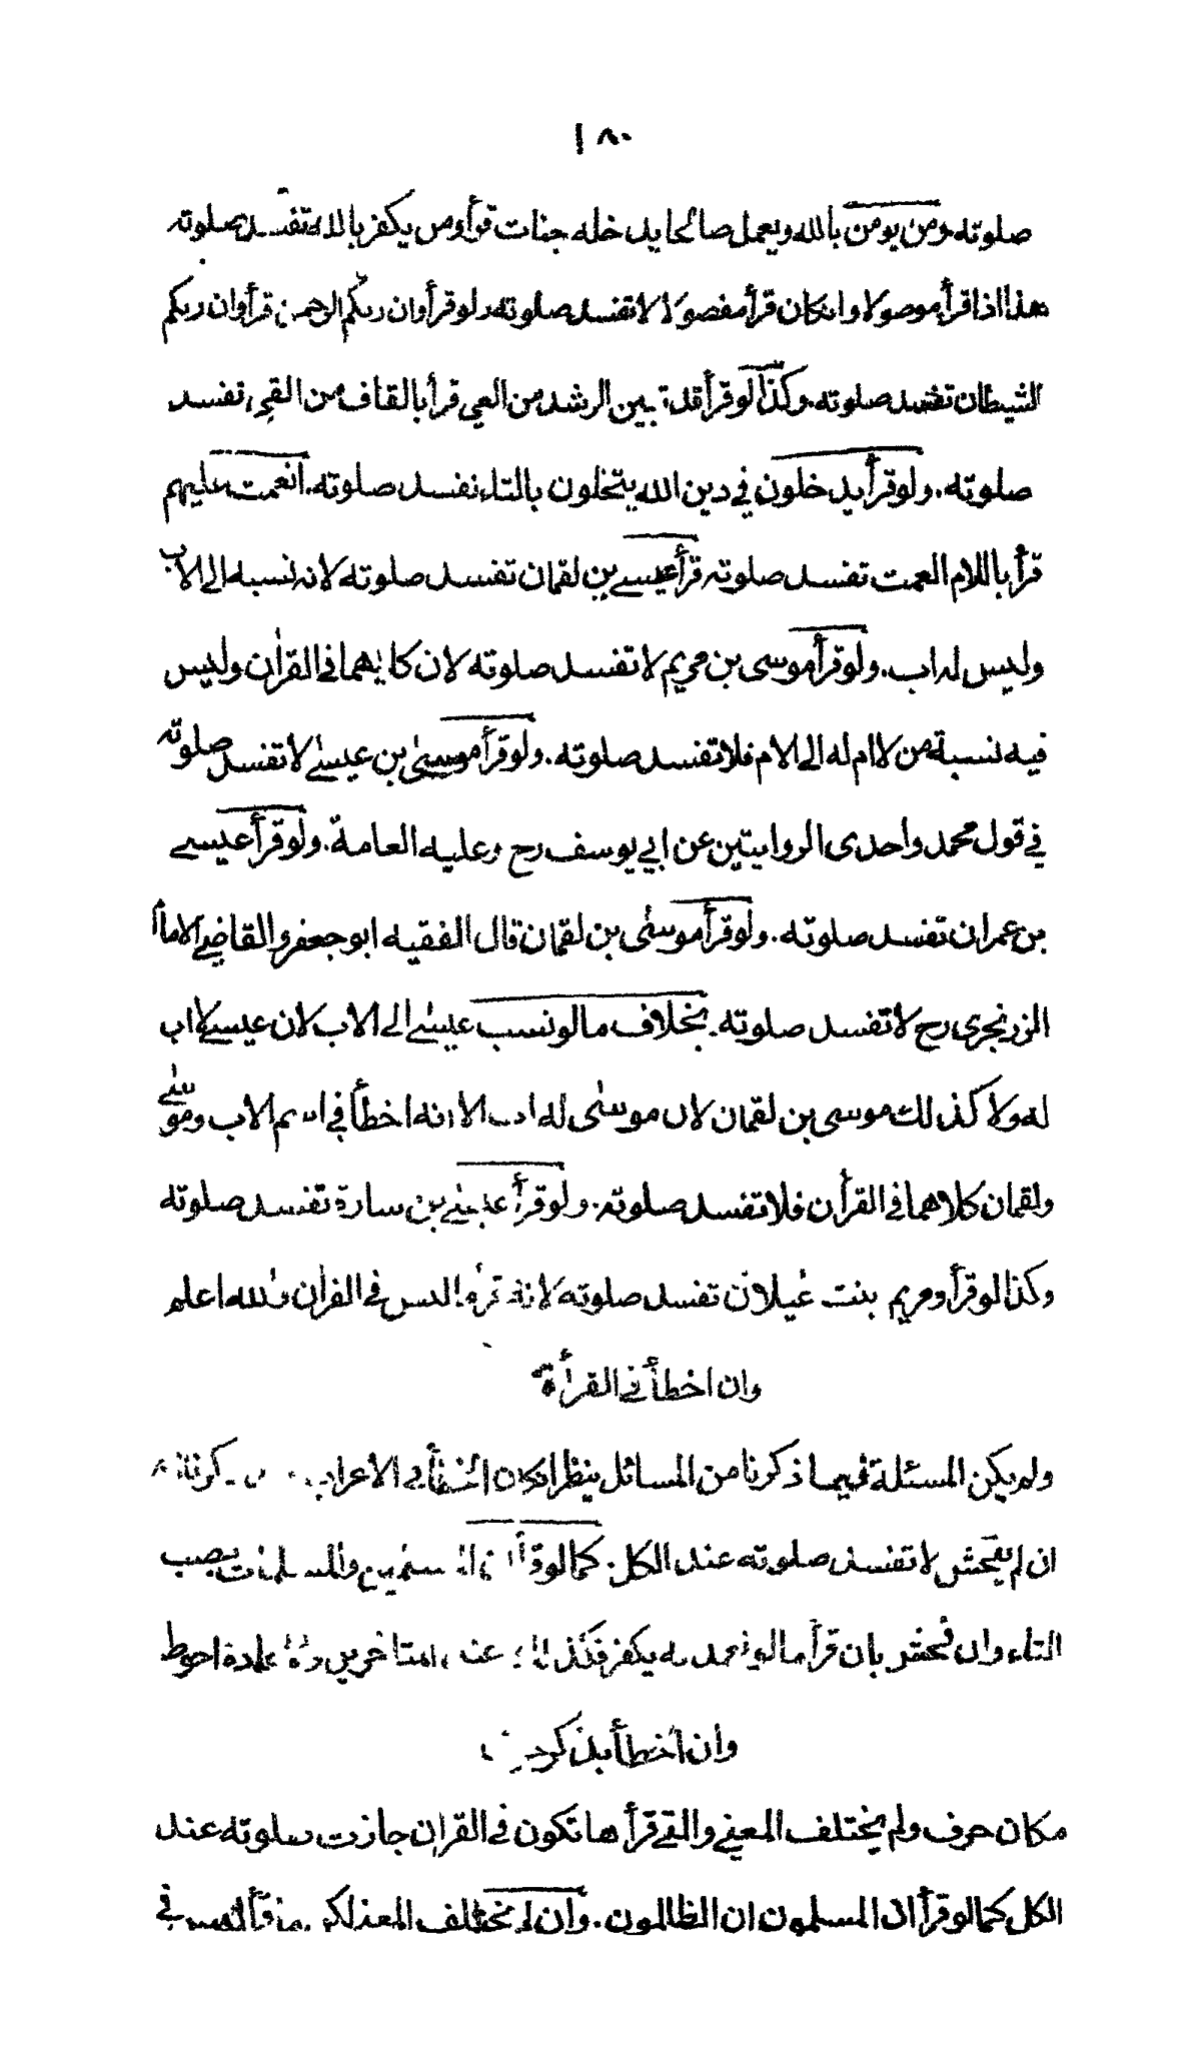 ١٨٠
صلوته ومن يومن بالله ويعمل صالحا يدخله جنات قرأ ومن يكفر بالله تفسد صلوته
هذا اذا قرأ موصولا وان كان قرأ مفصولا لا تفسد صلوته ولو قرأ وان ربكم الرحمن قرأ وان ربكم
الشيطان تفسد صلوته. وكذا لو قرأ قد تبين الرشد من الغي قرأ بالقاف من القي تفسد
صلوته. ولو قرأ يدخلون في دين الله يتخلون بالتاء تفسد صلوته. انعمت عليهم
قرأ باللام العمت تفسد صلوته قرأ عيسى بن لقمان تفسد صلوته لانه نسبه الى الاب
وليس له اب. ولو قرأ موسى بن مريم لا تفسد صلوته لان كلايهما في القرأن وليس
فيه نسبة من لا ام له الى الام فلا تفسد صلوته. ولو قرأ موسى بن عيسى لا تفسد صلوته
في قول محمد واحدى الروايتين عن ابي يوسف رح وعليه العامة. ولو قرأ عيسى
بن عمران تفسد صلوته. ولو قرأ موسى بن لقمان قال الفقيه ابو جعفر والقاضي الامام
الزرنجرى رح لا تفسد صلوته. بخلاف ما لو نسب عيسى الى الاب لان عيسى لا اب
له ولا كذلك موسى بن لقمان لان موسى له اب الا انه اخطأ في اسم الاب وموسى
ولقمان كلاهما في القرأن فلا تفسد صلوته. ولو قرأ عيسى بن سارة تفسد صلوته
وكذا لو قرأ ومريم بنت غيلان تفسد صلوته لانه ليس في القرأن والله اعلم
وان اخطأ في القرأة
ولم يكن المسئلة فيما ذكرنا من المسائل ينظر ان كان الخطأ في الاعراب
ان لم يفحش لا تفسد صلوته عند الكل. كما لو قرأ ان المسلمين والمسلمات بنصب
التاء وان فحش بان قرأ ما لو تعمد به يكفر فكذلك عند المتأخرين احوط
وان اخطأ بذكر حرف
مكان حرف ولم يختلف المعنى والتي قرأها تكون في القرأن جازت صلوته عند
الكل كما لو قرأ ان المسلمون ان الظالمون. وان لم يختلف المعنى لكن في